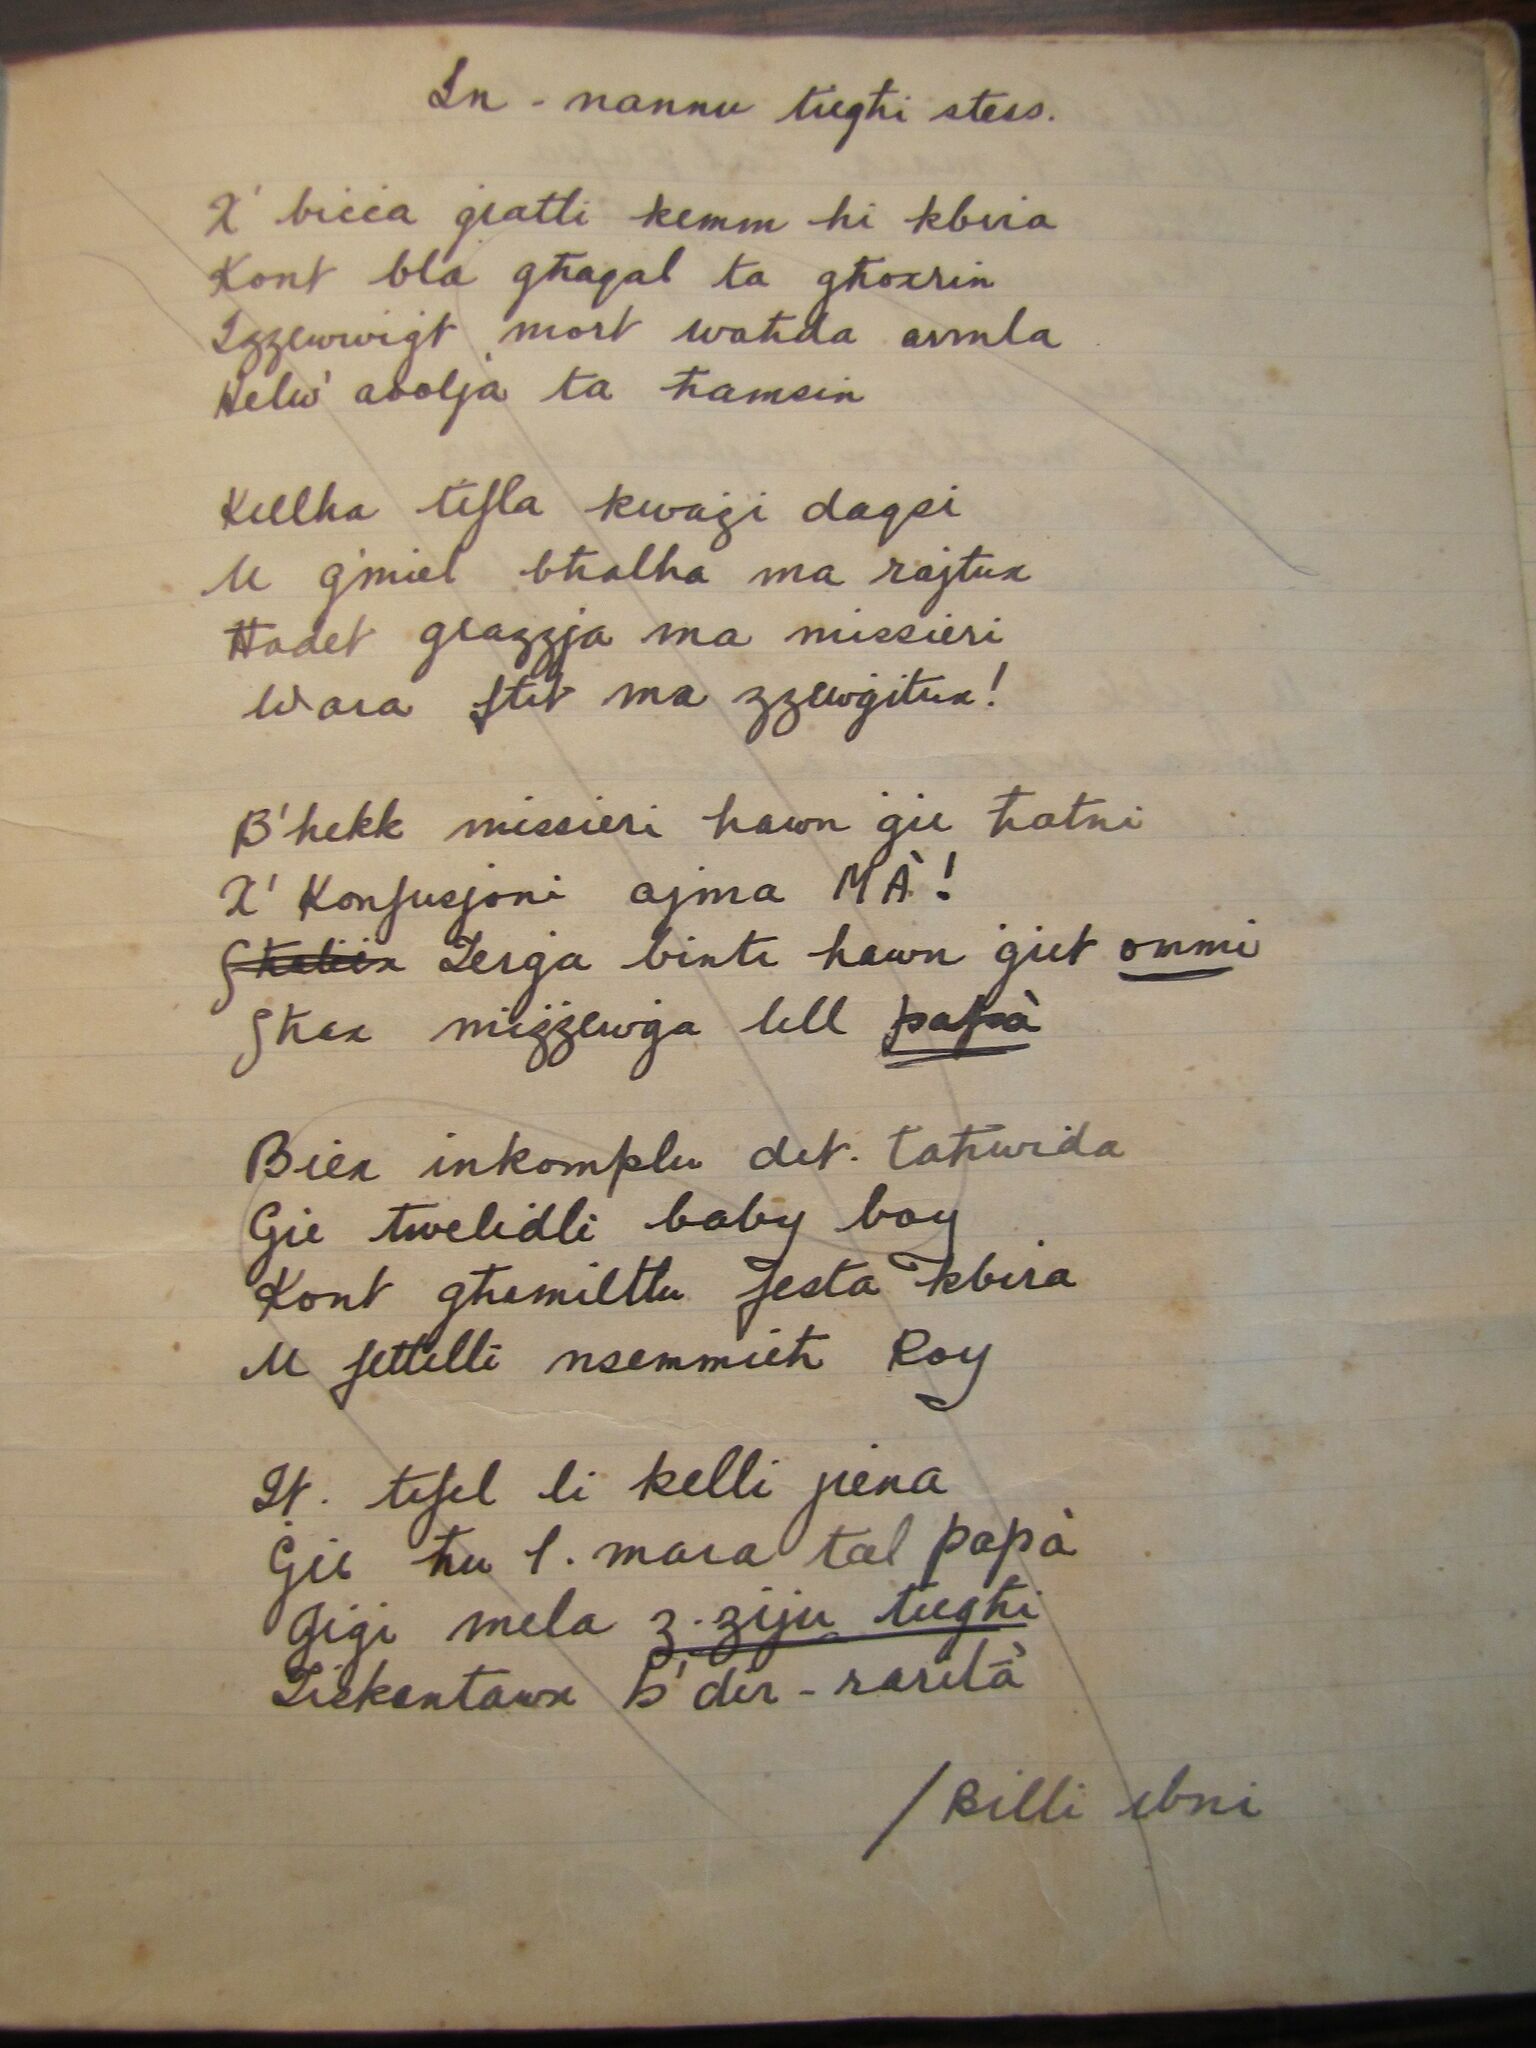 In - nannu tiegħi stess.
X' bicca ġratli kemm hi kbira
Kont bla għaqal ta għoxrin
Izzewwigt mort waħda armla
Helu' addlja ta ħamsin
Kellha tifla kważi daqsi
U ġmiel bħalha ma rajtux
Ħadet grazzja ma missieri
Wara ftit ma zzewġitux!
B'hekk missieri hawn ġie ħatni
X' Konfusjoni ajma MÀ!
Terġa binti hawn ġiet ommi
Għax miżżewġa lell papà
Biex inkomplu det. taħwida
Gie twelidli baby boy
Kont għamiltlu festa kbira
U fettilli nsemmieħ Roy
It. tifel li kelli jiena
Ġie ħu l. mara tal papà
Jigi mela z. ziju tiegħi
Tiskantawx b' din - rarità
/ Billi ibni